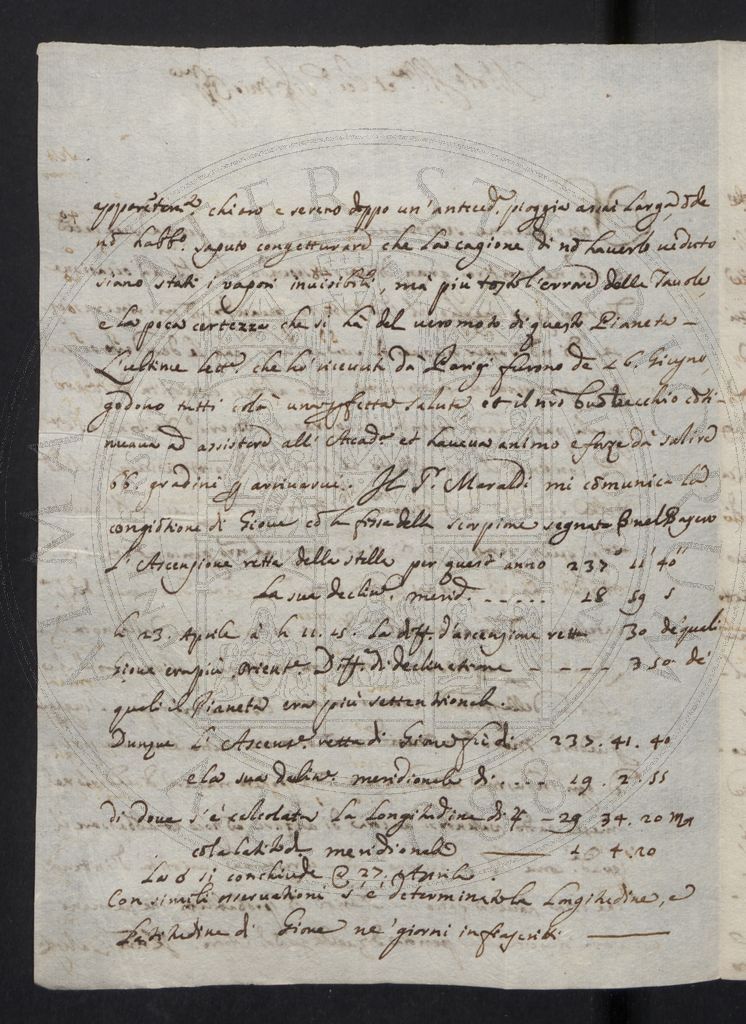 chiaro e sereno doppo un' anteced. pioggia assai larga, õde
nõ habb.º saputo congetturare che la cagione di nõ haverlo veduto
siano stati i vapori invisibili, mà più tosto l'errore delle Tavole,
e la poca certezza che si hà del vero moto di questo Pianeta –
L'ultime lett.e che hò ricevuti dà Parigi furono de 26. Giugno,
godono tutti colà una pfetta salute, et il nrõ buõ vecchio cõti-
nuava ad assistere all' Acad.ª et haveva animo e forze dà salire
66. gradini p arrivarvi. Il S.r Maraldi mi cõmunica la
congiõtione di Giove cõ la fissa dello scorpione segnata β nel Bayero
L' Ascensione retta della stella per quest' anno 237° 11' 40''
La sua declin.e merid. ...... 18 59 5
li 23. Aprile à h 11. 15. la diff. d'ascensione retta 30 de quali
Giove era più orient.e Diff. di declinatione – – – – – 3 50 de
quali il Pianeta era più settentrionale.
Dunque l' Ascens.e retta di Giove fù di 237. 41. 40
e la sua declin.e meridionale di .... 19. 2. 55
di dove s'è calcolata la Longitudine di ♃ – 29 34. 20 ♏
cõ la latitud.e meridionale —— 4. 20
La ☌ si conchiude @ 27. Aprile.
Con simili osservationi s'è determinata la Longitudine, e
Latitudine di Giove ne' giorni infrascritti ——